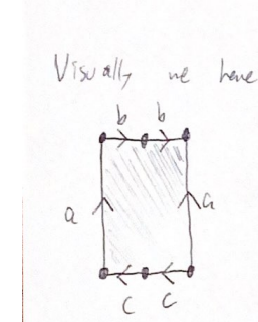 Visually we have
b b
a a
c c